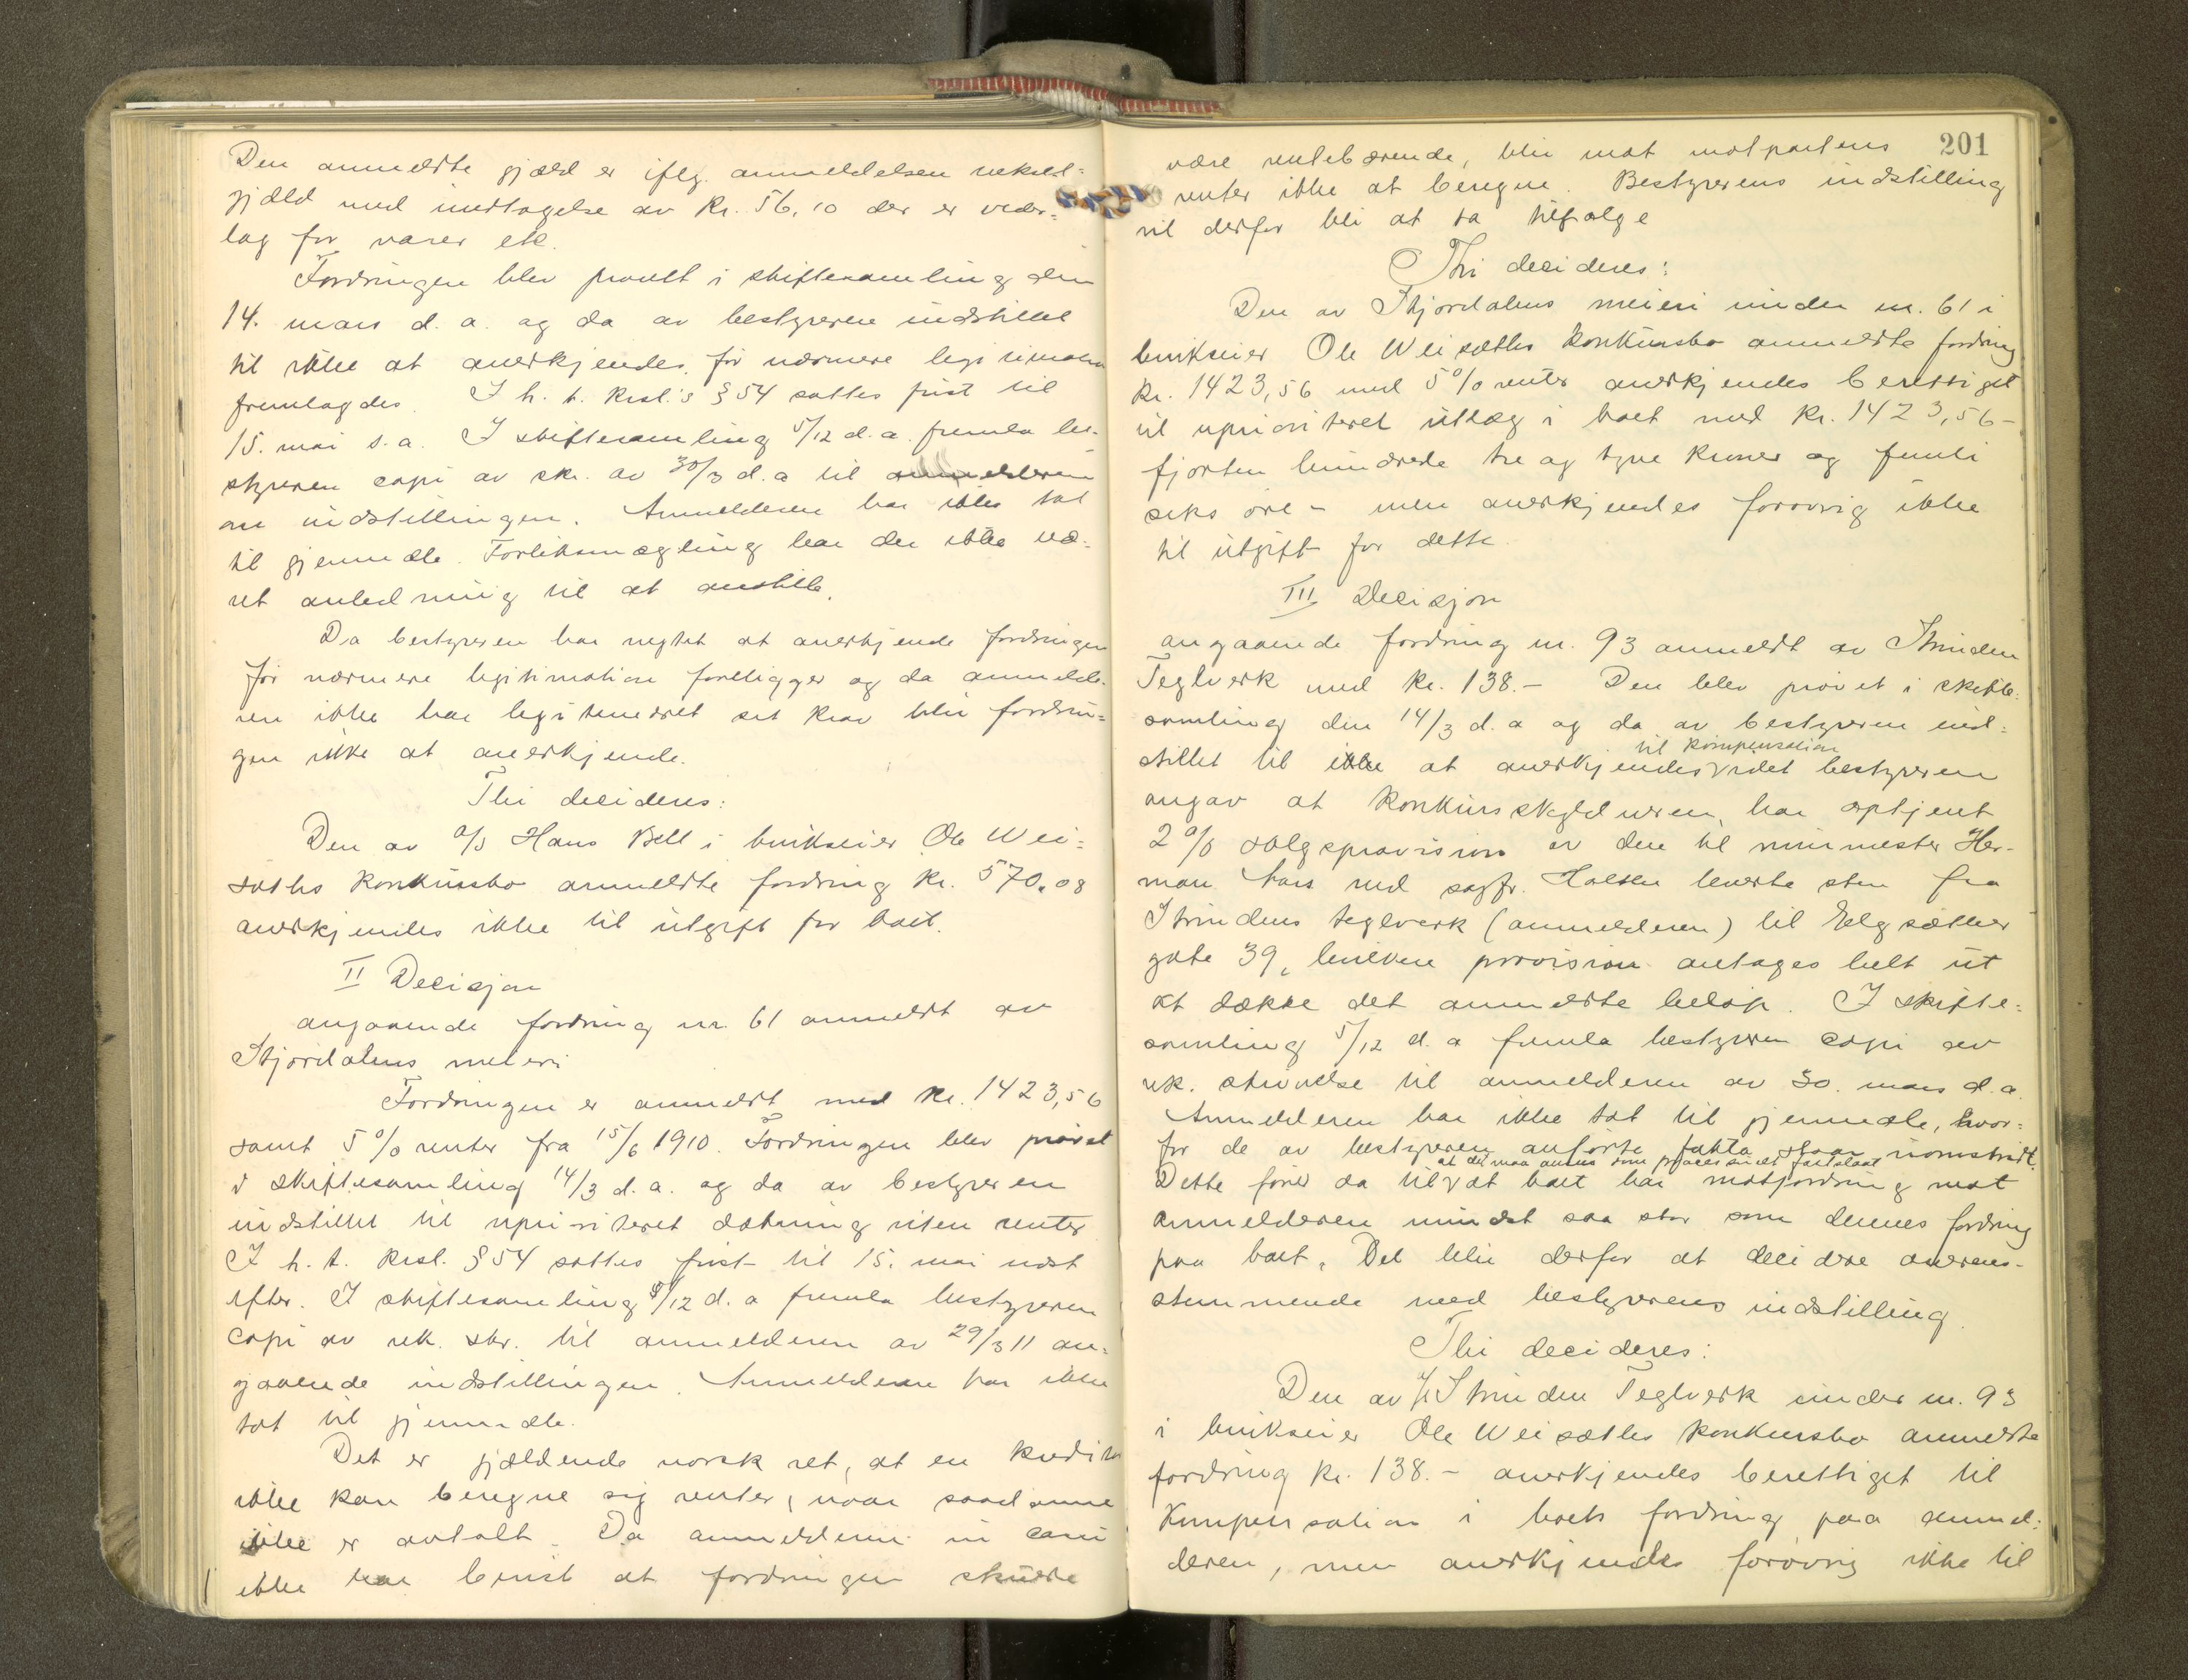 Den anmeldte gjæld er iflg. anmeldelsen veksel-
gjæld med undtagelse av kr. 56,10 der er veder-
lag for varer etc.
Fordringen blev prøvet i skiftesamling den
14. mars d. a. og da av bestyreren indstillet
til ikke at anerkjendes, før nærmere legitimation
fremlagdes. I h. t. krsl.'s § 54 sattes frist til
15. mai s. a. I skiftesamling 5/12 d. a. fremla be-
styreren copi av skr. av 30/3 d. a til anmelderen
om indstillingen. Anmelderen har ikke tat
til gjenmæle. Forliksmægling har der ikke væ-
ret anledning til at anstille.
Da bestyreren har negtet at anerkjende fordringen
før nærmere legitimation foreligger og da anmelde-
ren ikke har legitimeret sit krav blir fordrin-
gen ikke at anerkjende.
Thi decideres:
Den av a/s Hans Bell i brukseier Ole Wei-
sæths konkursbo anmeldte fordring kr. 570,08
anerkjendes ikke til utgift for boet.
II Decisjon
angaaende fordring nr. 61 anmeldt av
Stjørdalens meieri
Fordringen er anmeldt med kr. 1423,56
samt 5 % renter fra 15/6 1910. Fordringen blev prøvet
i skiftesamling 14/3 d. a. og da av bestyreren
indstillet til uprioritert dækning uten renter
I h. t. krsl. § 54 sattes frist til 15. mai næst
efter. I skiftesamling 5/12 d. a fremla bestyreren
copi av rek. skr. til anmelderen av 29/3 11 an-
gaaende indstillingen. Anmelderen har ikke
tat til gjenmæle.
Det er gjældende norsk ret, at en kreditor
ikke kan beregne sig renter, naar saadanne
ikke er avtalt. Da anmelderen in casu
ikke har bevist at fordringen skulde
201
være rentebærende, blir mot motpartens
renter ikke at beregne. Bestyrerens indstilling
vil derfor bli at ta tilfølge
Thi decideres:
Den av Stjørdalens meieri under nr. 61 i
brukseier Ole Weisæths konkursbo anmeldte fordring
kr. 1423,56 med 5 % renter anerkjendes berettiget
til uprioriteret utlæg i boet med kr. 1423,56 -
fjorten hundrede tre og tyve kroner og femti
seks øre - men anerkjendes forøvrig ikke
til utgift for dette.
III Decisjon
angaaende fordring nr. 93 anmeldt av Strinden
Teglverk med kr. 138.- Den blev prøvet i skifte-
samling den 14/3 d. a og da av bestyreren ind-
til kompensation
stillet til ikke at anerkjendes idet bestyreren
angav at konkursskyldneren har optjent
2 % salgsprovision av den til murmester Her-
man ved sagfr. leverte sten fra
Strindens teglverk (anmelderen) til Elgsæther
gate 39, hvilken provision antages helt ut
at dække det anmeldte beløp. I skifte-
samling 5/12 d. a fremla bestyreren copi av
rek. skrivelse til anmelderen av 30. mars d. a.
Anmelderen har ikke tat til gjenmæle, hvor-
for de av bestyreren anførte fakta staar uomstridt.
at det maa ansees som processuelt fastslaat
Dette fører da til at boet har motfordring mot
anmelderen mindst saa stor som dennes fordring
paa boet. Det blir derfor at decidere overens-
stemmende med bestyrerens indstilling.
Thi decideres:
Den av Strinden Teglverk under nr. 93
i brukseier Ole Weisæths konkursbo anmeldte
fordring kr. 138.- anerkjendes berettiget til
Kompensation i boets fordring paa anmel-
deren, men anerkjendes forøvrig ikke til